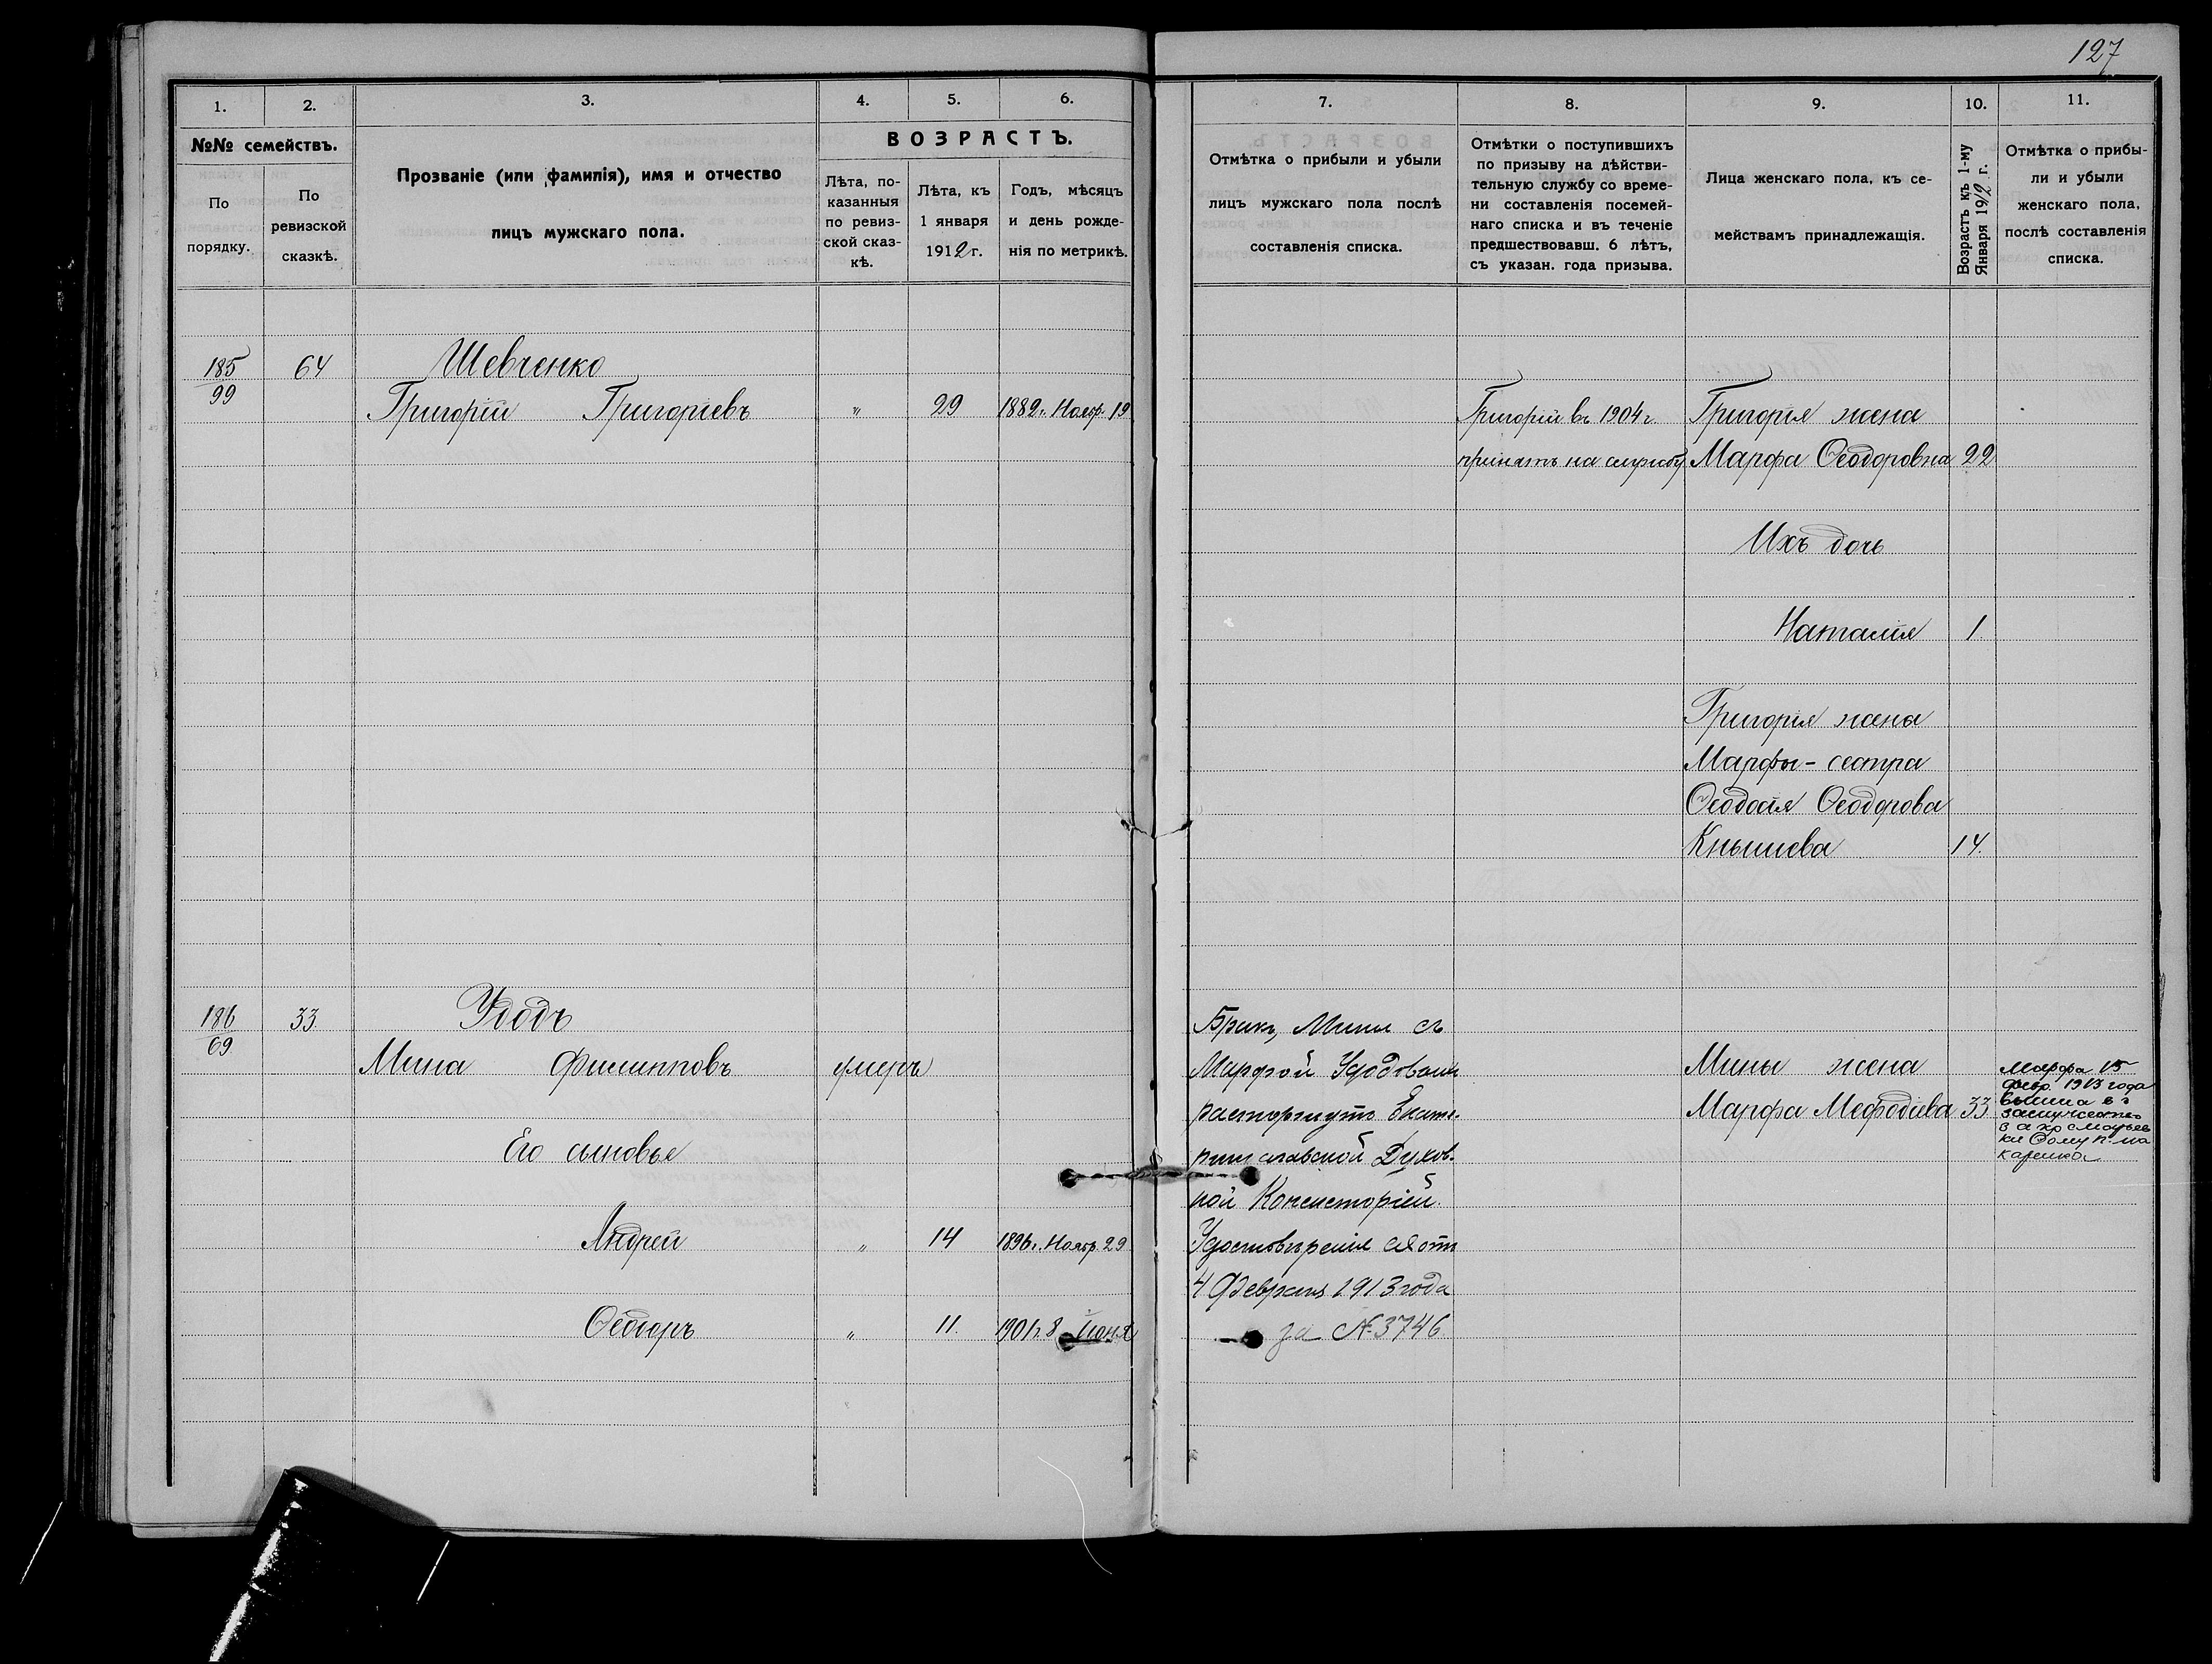 127
1.
2.
3.
4.
5.
6.
№№ семействъ.
По
порядку.
По
ревизской
сказкѣ.
Прозваніе (или фамилія), имя и отчество
лицъ мужскаго пола.
ВОЗРАСТЪ.
Лѣта, по-
казанныя
по ревиз-
ской сказ-
кѣ.
Лѣта, къ
1 января
1912 г.
Годъ, мѣсяцъ
и день рожде-
нія по метрикѣ.
7.
8.
9.
10.
11.
Отмѣтка о прибыли и убыли
лицъ мужскаго пола послѣ
составленія списка.
Отмѣтки о поступившихъ
по призыву на дѣйстви-
тельную службу со време-
ни составленія посемей-
наго списка и въ теченіе
предшествовавш. 6 лѣтъ,
съ указан. года призыва.
Лица женскаго пола, къ се-
мействамъ принадлежащія.
Возрастъ къ 1-му
Января 1912 г.
Отмѣтка о прибы-
ли и убыли
женскаго пола,
послѣ составленія
списка.
185
99
64
Шевченко
Григорій Григоріевъ " 29 1882 г. Наяб. 19
Григорій въ 1904 г.
принятъ на службу
Григорія жена
Марфа Ѳеодоровна 22
Ихъ дочь
Наталія 1
Григорія жена
Марфы - сестра
Ѳеодосія Ѳеодорова
Кнышева 14.
186
69
33
Удодъ
Мина Филипповъ умеръ
Его сыновья
Андрей " 14 1896 г. Наяб. 29
Ѳеодоръ " 11. 1901 г. 8 Іюня
Бракъ, Мины съ
Марфой Удодовыхъ
расторгнутъ Екате-
ринославской Духов-
ной Консисторіей.
Удостовѣреніе ея отъ
4 Февраля 1913 года
за № 3746
Мины жена
Марфа Мефодіева 33
Марфа 15
февр. 1913 года
вышла в
замужество
за кр
каренко